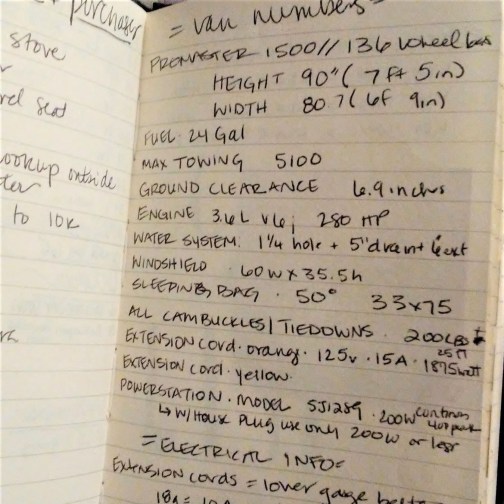 purchases
stove
seat
hookup outside
to 10k
= van numbers =
PROMASTER 1500 // 136 wheel bas
HEIGHT 90" ( 7 ft 5 in)
WIDTH 80.7 ( 6f 9in)
FUEL · 24 Gal
MAX TOWING 5100
GROUND CLEARANCE 6.9 inches
ENGINE 3.6L V6; 280 HP
WATER SYSTEM: 1 1/4 hole + 5" drain +
WINDSHIELD 60w x 35.5h
SLEEPING BAG · 50° 33x75
ALL CAMBUCKLES / TIEDOWNS · 200LBS
25ft
EXTENSION CORD · orange · 125v · 15A · 1875watt
EXTENSION cord · yellow ·
POWERSTATION · MODEL SJ1289 · 200W continuous
400peak
↳ w/ House Plug use only 200w or less
= ELECTRICAL INFO =
Extension cords = lower gauge